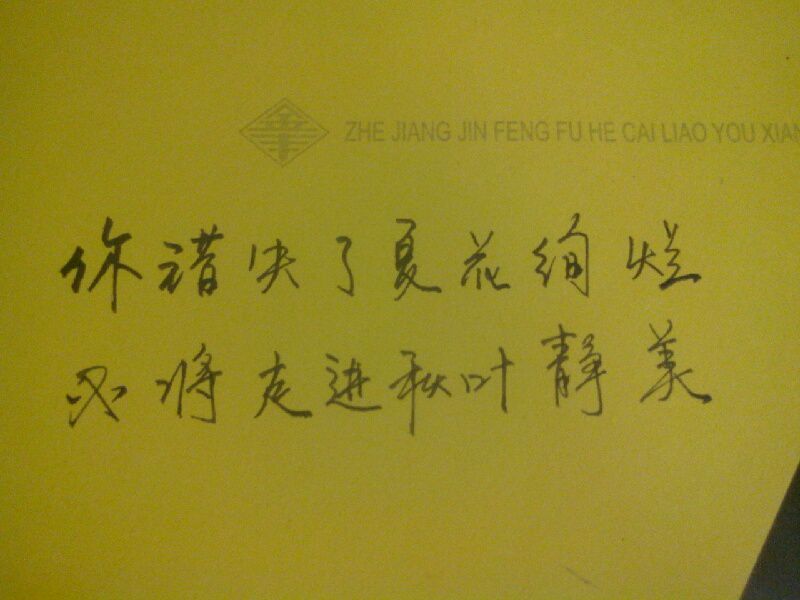 ZHE JIANG JIN FENG FU HE CAI LIAO YOU XIAN
你错失了夏花绚烂
必将走进秋叶静美